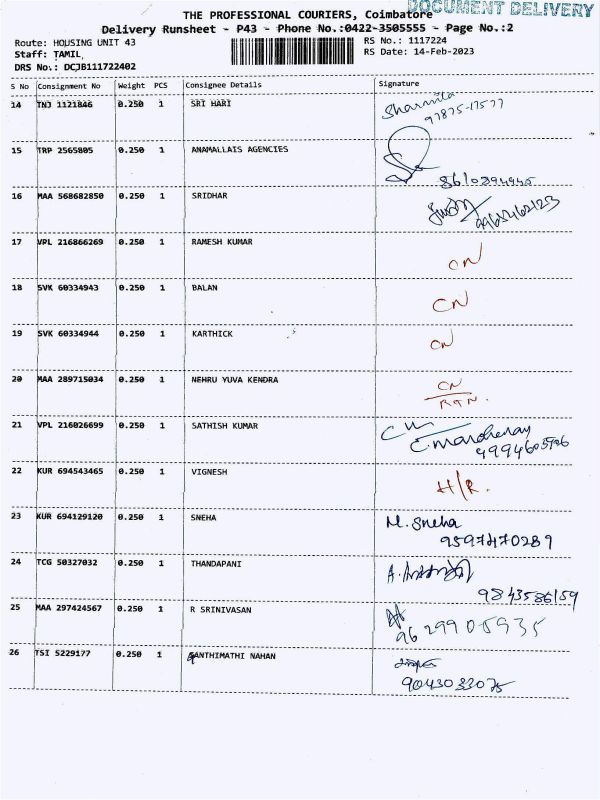 DOCUMENT DELIVERY
THE PROFESSIONAL COURIERS, Coimbatore
Delivery Runsheet - P43 - Phone No.:0422-3505555 - Page No.:2
Route: HOUSING UNIT 43
RS No.: 1117224
Staff: TAMIL,
RS Date: 14-Feb-2023
DRS No.: DCJB111722402
S No Consignment No Weight PCS Consignee Details Signature
14 TNJ 1121846 0.250 1 SRI HARI Sharmila
97875-17577
15 TRP 2565805 0.250 1 ANAMALLAIS AGENCIES
8610894945
16 MAA 568682850 0.250 1 SRIDHAR
9965462123
17 VPL 216866269 0.250 1 RAMESH KUMAR CN
18 SVK 60334943 0.250 1 BALAN CN
19 SVK 60334944 0.250 1 KARTHICK CN
20 MAA 289715034 0.250 1 NEHRU YUVA KENDRA CN
RTN.
21 VPL 216026699 0.250 1 SATHISH KUMAR
22 KUR 694543465 0.250 1 VIGNESH H/R.
23 KUR 694129120 0.250 1 SNEHA M. Sneha
9597470289
24 TCG 50327032 0.250 1 THANDAPANI
9843586159
25 MAA 297424567 0.250 1 R SRINIVASAN
9629905935
26 TSI 5229177 0.250 1 GANTHIMATHI NAHAN
9043033075